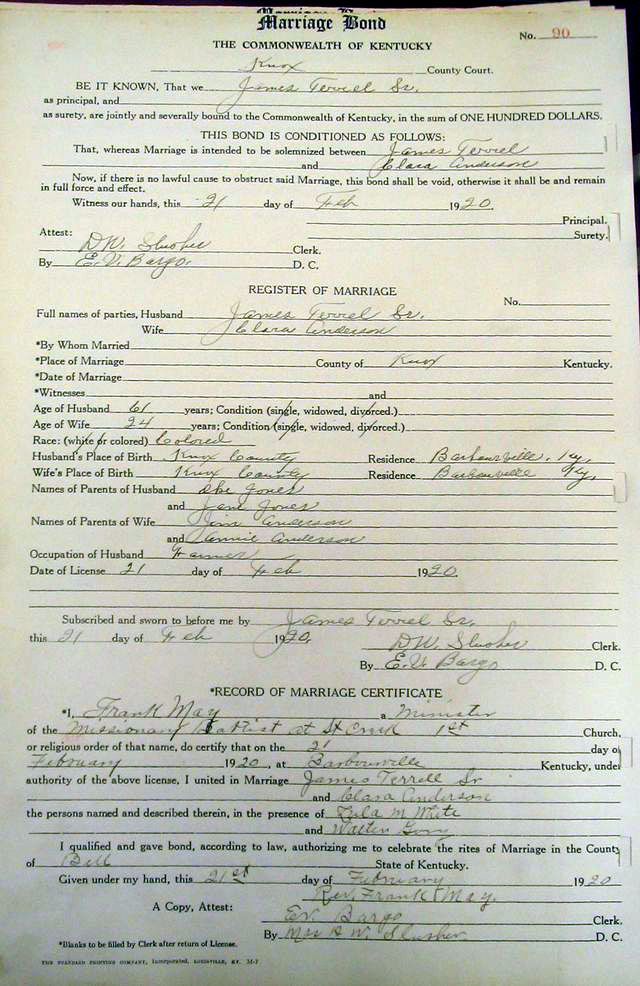 Marriage Bond
No. 90
THE COMMONWEALTH OF KENTUCKY
Knox County Court.
BE IT KNOWN, That we James Terrel Sr.
as principal, and
as surety, are jointly and severally bound to the Commonwealth of Kentucky, in the sum of ONE HUNDRED DOLLARS.
THIS BOND IS CONDITIONED AS FOLLOWS:
That, whereas Marriage is intended to be solemnized between James Terrel
and Clara Anderson
Now, if there is no lawful cause to obstruct said Marriage, this bond shall be void, otherwise it shall be and remain
in full force and effect.
Witness our hands, this 21 day of Feb 1920.
Principal.
Surety.
Attest:
D.W. Slusher Clerk.
By E.V. Bargo. D. C.
REGISTER OF MARRIAGE
No.
Full names of parties, Husband James Terrel Sr.
Wife Clara Anderson
*By Whom Married
*Place of Marriage County of Knox Kentucky.
*Date of Marriage
*Witnesses and
Age of Husband 61 years; Condition (single, widowed, divorced.)
Age of Wife 24 years; Condition (single, widowed, divorced.)
Race: (white or colored) Colored
Husband's Place of Birth Knox County Residence Barbourville, Ky,
Wife's Place of Birth Knox County Residence Barbourville Ky,
Names of Parents of Husband Abe Jones
and Jane Jones
Names of Parents of Wife Jim Anderson
and Annie Anderson
Occupation of Husband Farmer
Date of License 21 day of Feb 1920.
Subscribed and sworn to before me by James Terrel Sr.
this 21 day of Feb 1920.
D.W. Slusher Clerk.
By E.V. Bargo D. C.
*RECORD OF MARRIAGE CERTIFICATE
*I, Frank May a Minister
of the Missionary Baptist at 1st Church,
or religious order of that name, do certify that on the 21 day of
February 1920, at Barbourville Kentucky, under
authority of the above license, I united in Marriage James Terrell Sr
and Clara Anderson
the persons named and described therein, in the presence of M White
and Walter
I qualified and gave bond, according to law, authorizing me to celebrate the rites of Marriage in the County
of Bell State of Kentucky.
Given under my hand, this 21st day of February 1920
Rev. Frank May.
A Copy, Attest: E.V. Bargo Clerk.
By Mrs D.W. Slusher D. C.
*Blanks to be filled by Clerk after return of License.
THE STANDARD PRINTING COMPANY, Incorporated, LOUISVILLE, KY.